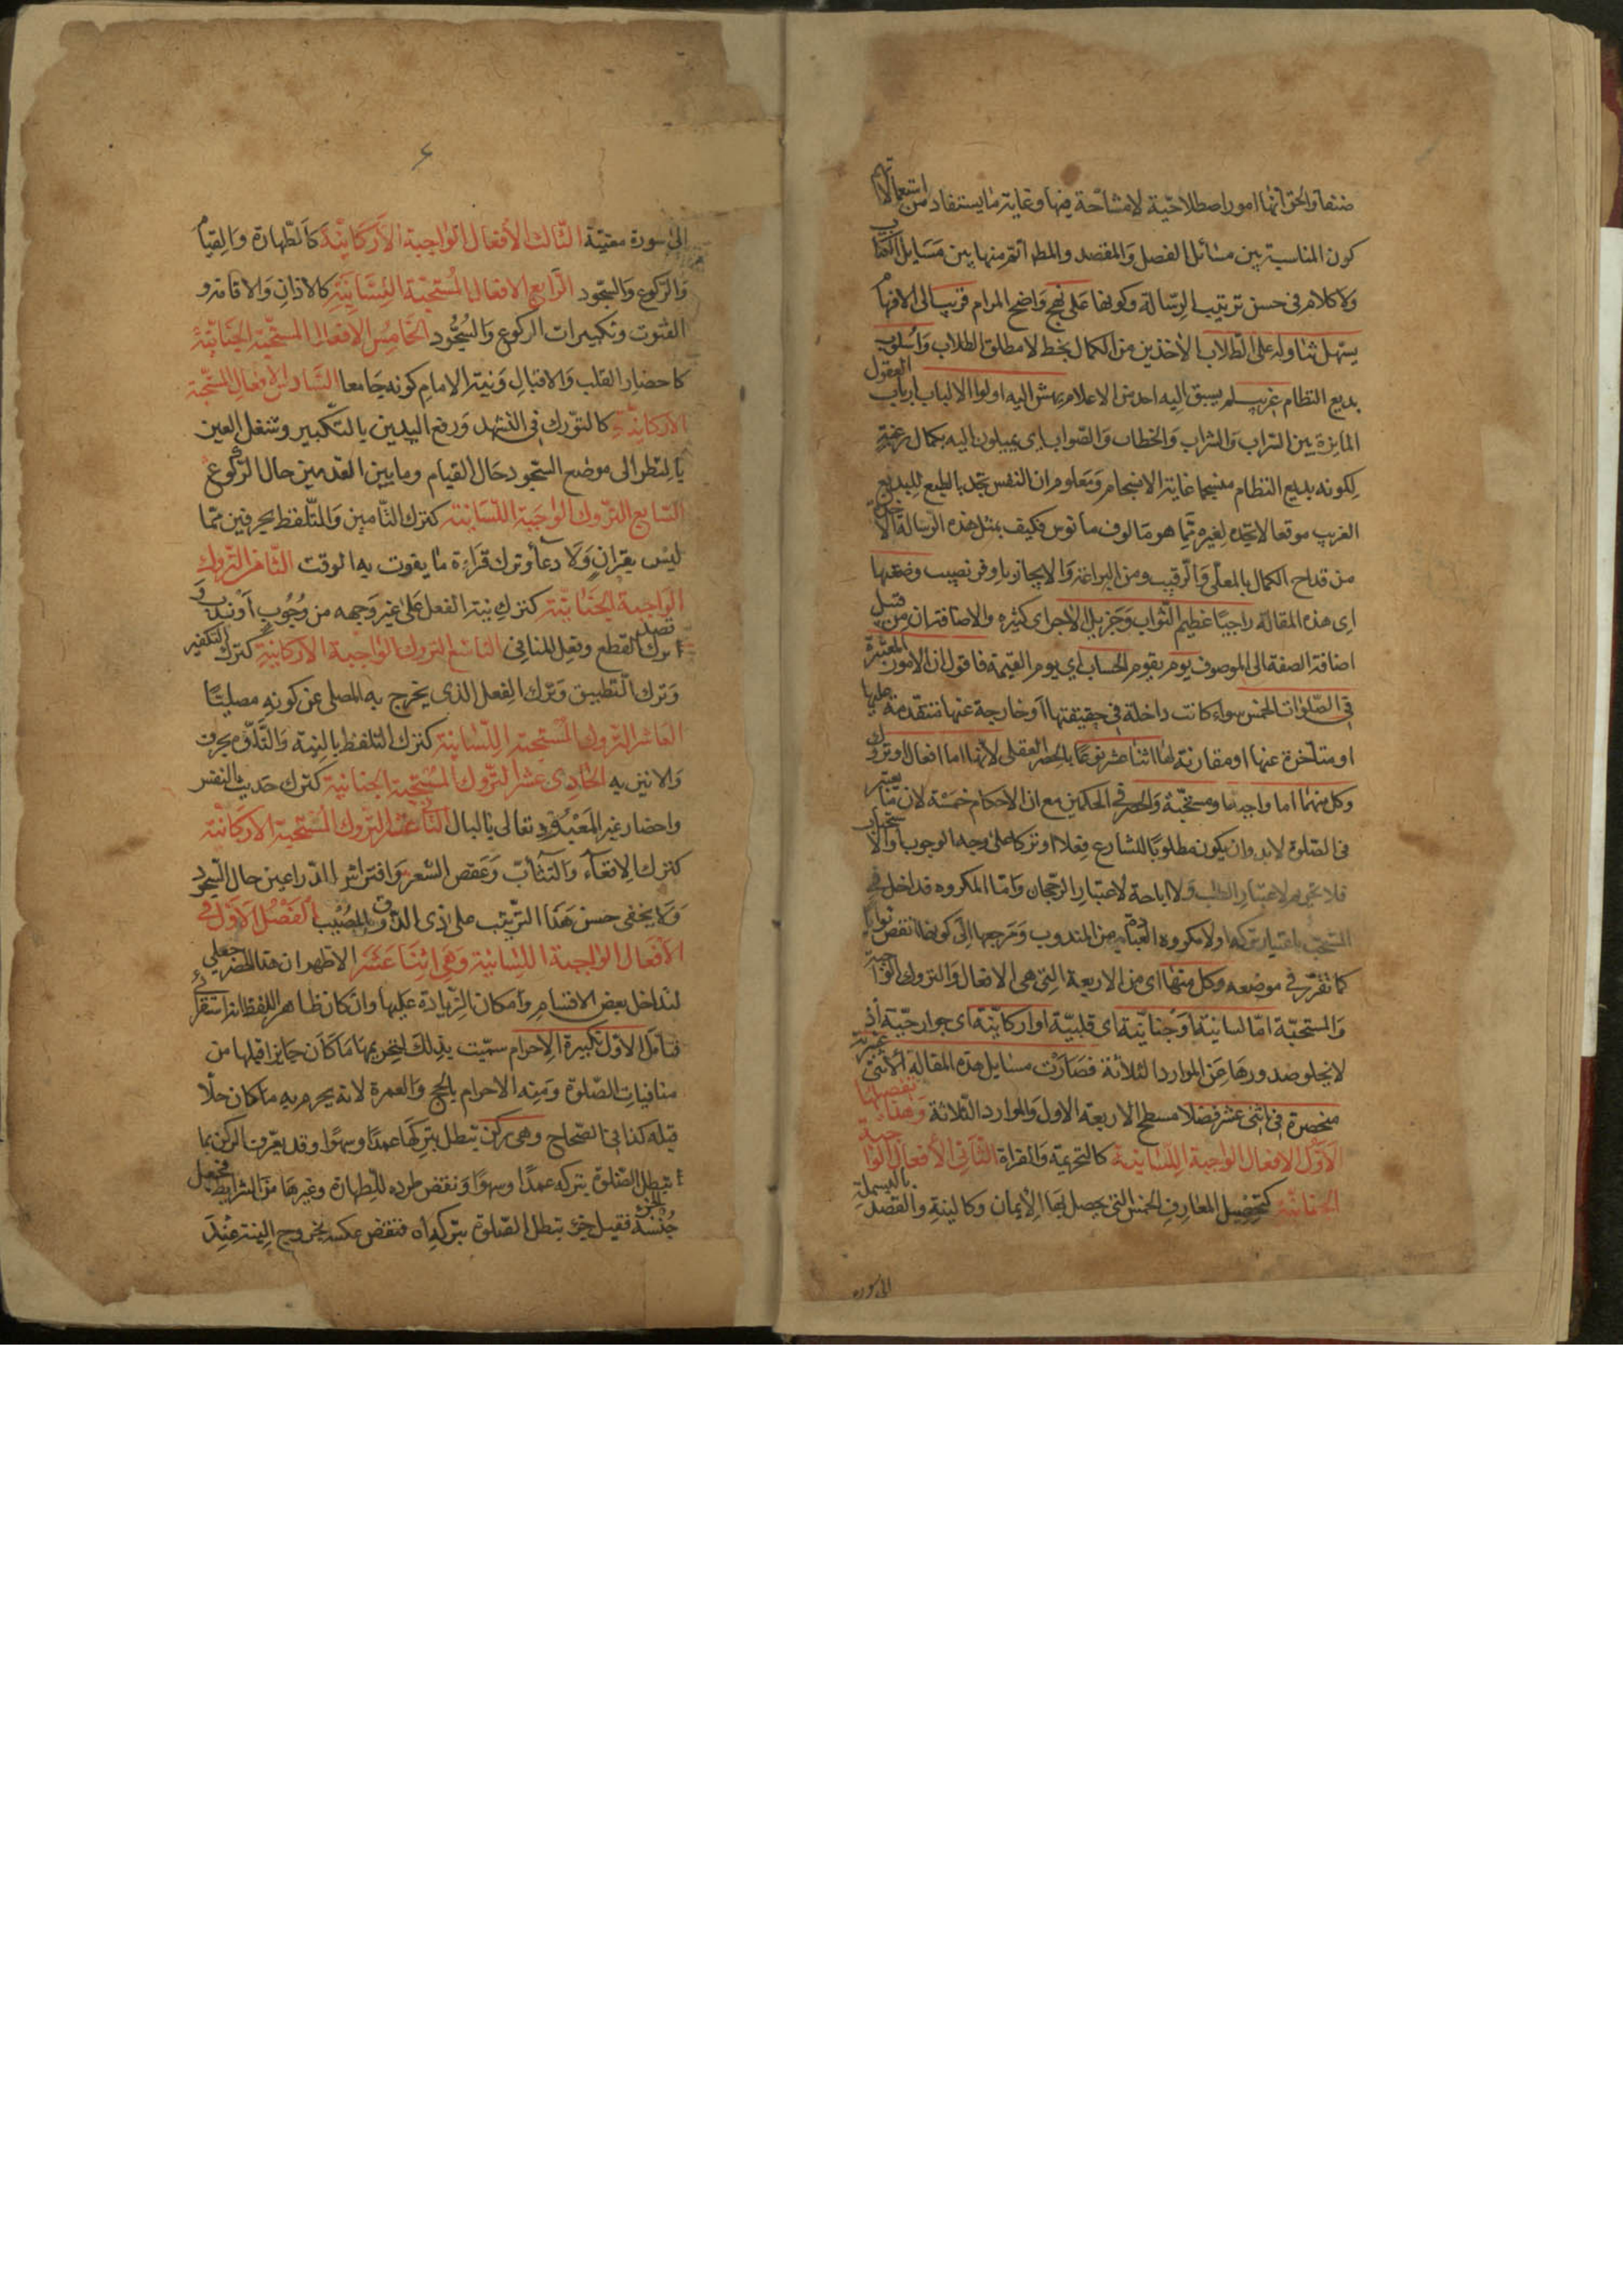 صنفها والحق انها امور اصطلاحية لا مشاحة فيها وغاية ما يستفاد من استعمالاتهم
كون المناسبة بين مسائل الفصل والمقصد والمطلب اتم منها بين مسايل الكتاب
ولا كلام فى حسن ترتيب الرسالة وكونها على نهج واضح المرام قريب الى الافهام
يسهل تناوله على الطلاب الآخذين من الكمال بخط لا مطلق الطلاب واسلوب
بديع النظام غريب لم يسبق اليه احد من الاعلام يهش اليه اولوا الالباب ارباب العقول
المايزة بين التراب والشراب والخطاء والصواب اى يميلون اليه بكمال رغبة
لكونه بديع النظام منسجما غاية الانسجام ومعلوم ان النفس تجد بالطبع للبديع
الغريب موقعا لا تجده لغيره مما هو مالوف مانوس فكيف بمثل هذه الرسالة الآخذة
من قداح الكمال بالمعلى والرقيب ومن البراعة والايجاز باوفر نصيب وضعتها
اى هذه المقالة راجيا عظيم الثواب وجزيل الاجر اى كثيره والاضافتان من قبيل
اضافة الصفة الى الموصوف يوم يقوم الحساب اى يوم القيمة فاقول ان الامور المعتبرة
فى الصلوات الخمس سواء كانت داخلة فى حقيقتها او خارجة عنها متقدمة عليها
او متاخرة عنها او مقارنة لها اثنا عشر نوعا بالحصر العقلى لانها اما افعال او تروك
وكل منهما اما واجبة او مستحبة والحصر فى الحكمين مع ان الاحكام خمسة لان ما يعتبر
فى الصلوة لابد وان يكون مطلوبا للشارع فعلا او تركا على وجه الوجوب او الاستحباب
فلا تحريم لاعتبار الطلب ولا اباحة لاعتبار الرجحان واما المكروه فداخل فى
المستحب باعتبار تركه اولا مكروه العبادة من المندوب ومرجعها الى كونها انقص ثوابا
كما تقرر فى موضعه وكل منها اى من الاربعة التى هى الافعال والتروك الواجبة
والمستحبة اما لسانية او جنانية اى قلبية او اركانية اى جوارحية اذ
لا يخلو صدورها عن الموارد الثلاثة فصارت مسايل هذه المقالة الاثنى عشرية
منحصرة فى اثنى عشر فصلا مسطح الاربعة الاول والموارد الثلاثة وهذا تفصيلها
الاول الافعال الواجبة اللسانية كالتحريمة والقراة الثانى الافعال الواجبة
الجنانية كتحصيل المعارف الخمس التى يحصل بها الايمان وكالنية والقصد بالبسملة
الى سورة
۶
الى سورة معينة الثالث الافعال الواجبة الاركانية كالطهارة والقيام
والركوع والسجود الرابع الافعال المستحبة اللسانية كالاذان والاقامة و
القنوت وتكبيرات الركوع والسجود الخامس الافعال المستحبة الجنانية
كاحضار القلب والاقبال ونية الامام كونه جامعا السادس الافعال المستحبة
الاركانية كالتورك فى التشهد ورفع اليدين بالتكبير وشغل العين
بالنظر الى موضع السجود حال القيام وما بين القدمين حال الركوع
السابع التروك الواجبة اللسانية كترك التامين والتلفظ بحرفين مما
ليس بقران ولا دعا وترك قراءة ما يفوت به الوقت الثامن التروك
الواجبة الجنانية كترك نية الفعل على غير وجهه من وجوب او ندب و
ترك قصد القطع وفعل المنافى التاسع التروك الواجبة الاركانية كترك التكفير
وترك التطبيق وترك الفعل الذى يخرج به المصلى عن كونه مصليا
العاشر التروك المستحبة اللسانية كترك التلفظ بالنية والتاوه بحرف
والانين به الحادى عشر التروك المستحبة الجنانية كترك حديث النفس
واحضار غير المعبود تعالى بالبال الثانى عشر التروك المستحبة الاركانية
كترك الاقعاء والتثأب وعقص الشعر وافتراش الذراعين حال السجود
ولا يخفى حسن هذا الترتيب على ذى الذوق المصيب الفصل الاول فى
الافعال الواجبة اللسانية وهى اثنا عشر الاظهر ان هذا الحصر جعلى
لتداخل بعض الاقسام وامكان الزيادة عليها وان كان ظاهر اللفظ انه استقرائى
فتامل الاول تكبيرة الاحرام سميت بذلك لتحريمها ما كان جايزا قبلها من
منافيات الصلوة ومنه الاحرام بالحج والعمرة لانه يحرم به ما كان حلا
قبله كذا فى الصحاح وهى ركن تبطل بتركها عمدا وسهوا وقد يعرف الركن بما
تبطل الصلوة بتركه عمدا وسهوا ونقض طرده بالطهارة وغيرها من الشرايط فجعل الجزء
جنسه فقيل جزء تبطل الصلوة بتركه اه فنقض عكسه بخروج النية عند